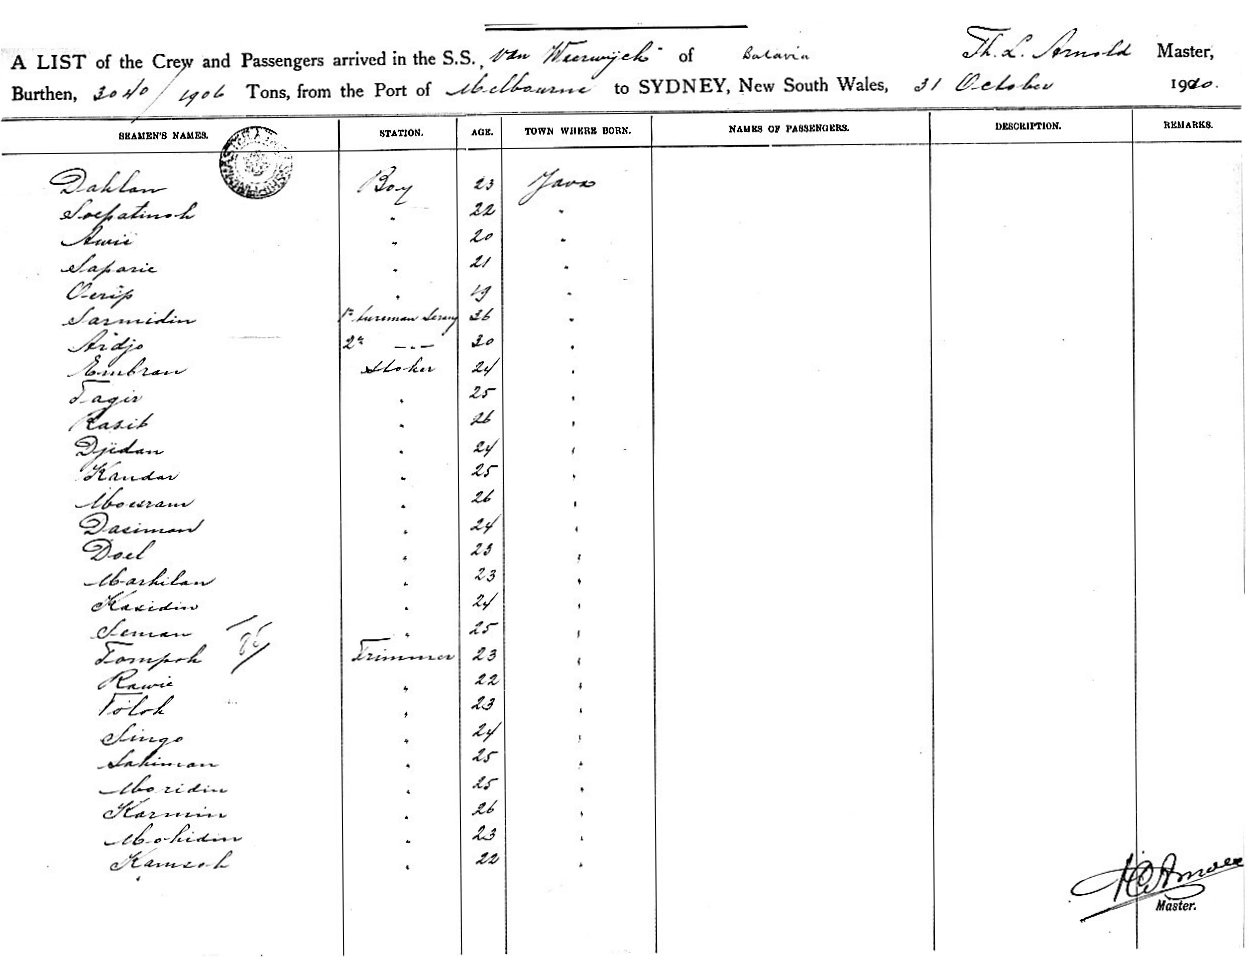 A LIST of the Crew and Passengers arrived in the S.S. van Waerwijck of Batavia Th. L. Arnold Master,
Burthen, 3040/1906 Tons, from the Port of Melbourne to SYDNEY, New South Wales, 31 October 1910.
SEAMEN'S NAMES. STATION. AGE. TOWN WHERE BORN. NAMES OF PASSENGERS. DESCRIPTION. REMARKS.
Dahlan Boy 23 Java
Soepatinoh " 22 "
Awie " 20 "
Saparie " 21 "
Oerip " 19 "
Sarmidin 1e fireman Serang 36 "
Aidjo 2e -"- 30 "
Embran Stoker 24 "
Tagir " 25 "
Rasib " 26 "
Djidan " 24 "
Kandar " 25 "
Moesram " 26 "
Dasiman " 24 "
Doel " 23 "
Markilan " 23 "
Kasidin " 24 "
Seman " 25 "
Tompoh Trimmer 23 "
Rawie " 22 "
Toloh " 23 "
Singo " 24 "
Sakiman " 25 "
Moridin " 25 "
Karmin " 26 "
Mohidin " 23 "
Kamsoh " 22 "
Master.